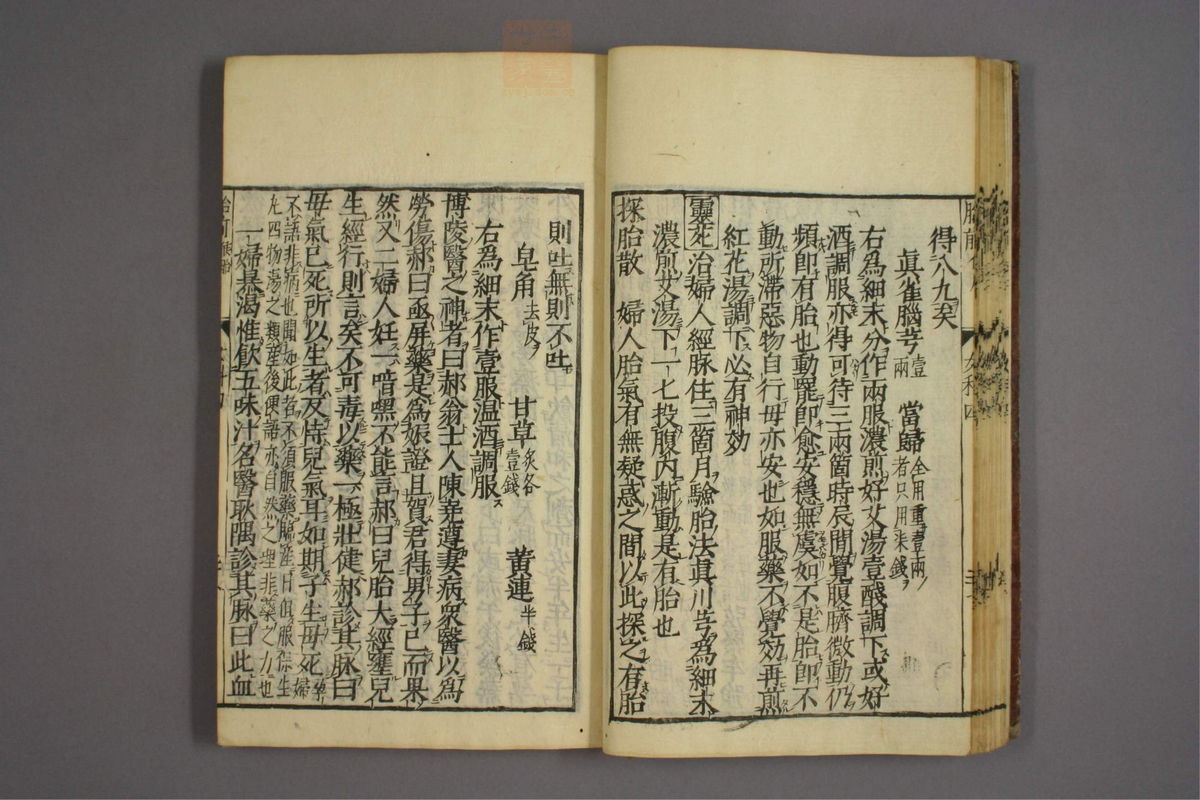 得八九矣
眞雀腦芎 壹兩 當歸 全用重壹兩者只用柒錢
右為細末分作兩服濃煎好艾湯壹醆調下或好
酒調服亦得可待三兩箇時辰間覺腹臍微動仍
頻即有胎也動罷即愈安穩無虞如不是胎即不
動所滯惡物自行母亦安也如服藥不覺効再煎
紅花湯調下必有神効
靈苑治婦人經脉住三箇月驗胎法眞川芎為細末
濃煎艾湯下一七投腹内漸動是有胎也
探胎散 婦人胎氣有無疑惑之間以此探之有胎
則吐無則不吐
皂角 去皮 甘草 炙各壹錢 黃連 半錢
右為細末作壹服温酒調服
博陵醫之神者曰郝翁士人陳堯遵妻病衆醫以為
勞傷郝曰亟屏藥是為娠證且賀君得男子已而果
然又二婦人妊一喑嘿不能言郝曰兒胎大經壅兒
生經行則言矣不可毒以藥一極壯健郝診其脉曰
母氣已死所以生者反恃兒氣耳如期子生母死 孕婦
不語非病也聞如此者不須服藥臨產日但服保生
九四物湯之類產後便語亦自然之理非藥之力也
一婦暴渴惟飲五味汁名醫耿隅診其脉曰此血